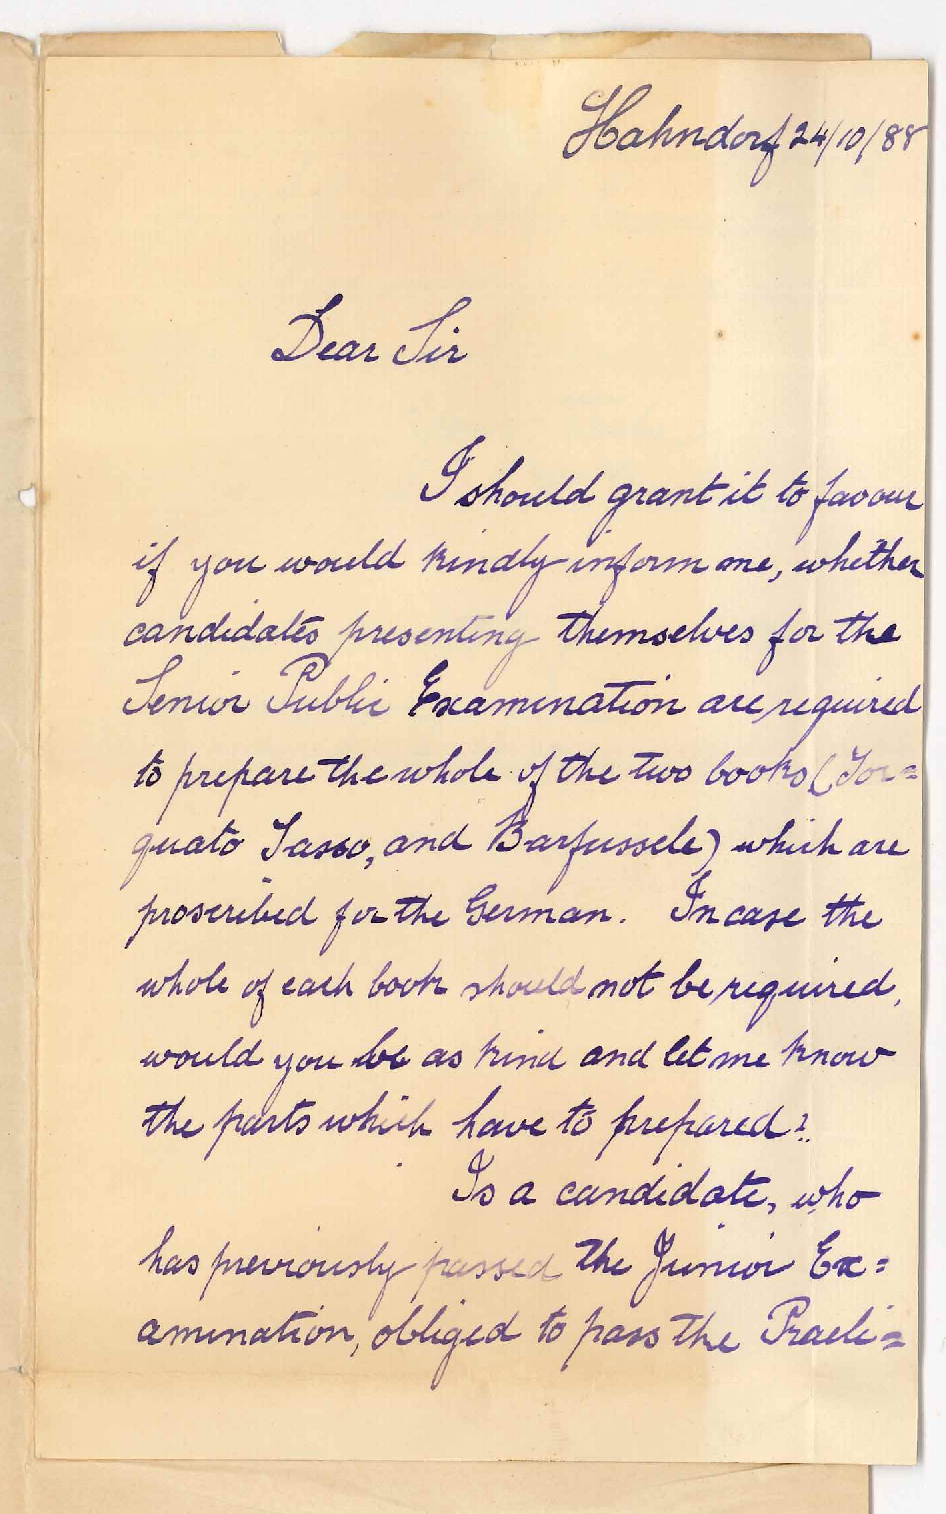 Hahndorf 24/10/88
Dear Sir
I should grant it to favour
if you would kindly inform me, whether
candidates presenting themselves for the
Senior Public Examination are required
to prepare the whole of the two books (Tor=
quato Tasso, and Barfussele) which are
proscribed for the German. In case the
whole of each book should not be required,
would you be as kind and let me know
the parts which have to prepared?
Is a candidate, who
has previously passed the Junior Ex=
amination, obliged to pass the Praeli=